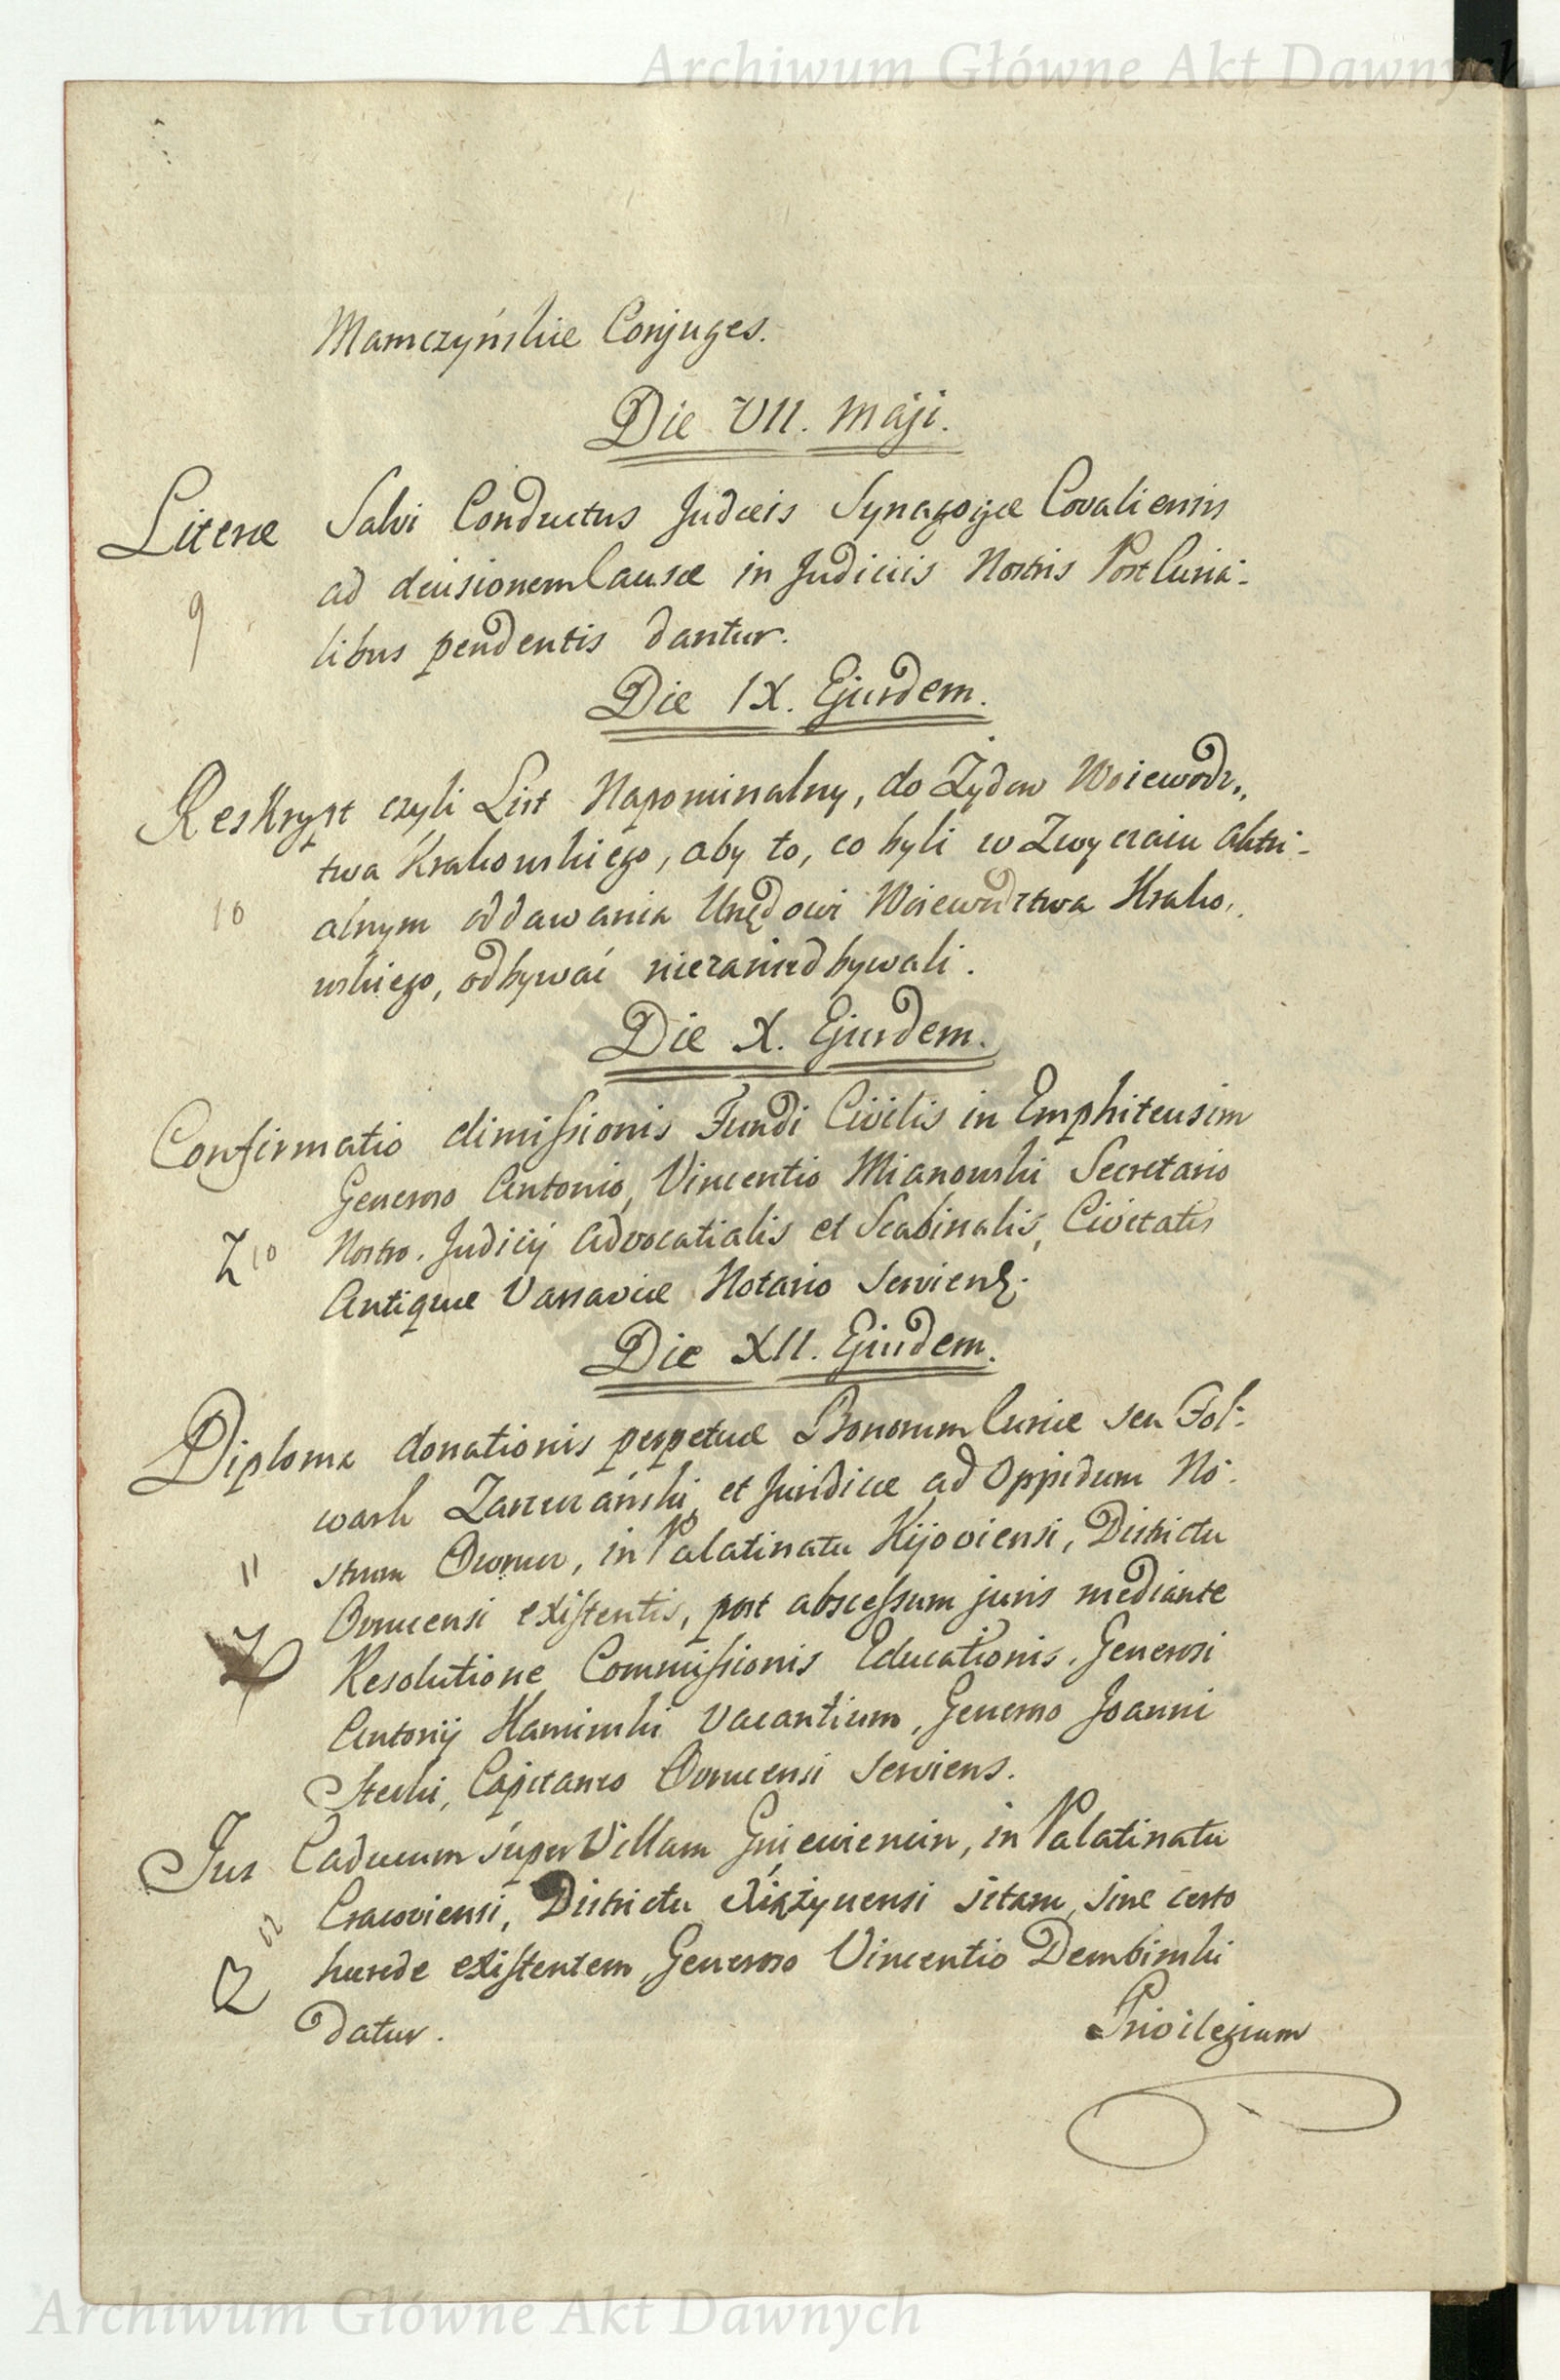 Archiwum Główne Akt Dawnych
Mamczyńskie Conjuges.
Die VII. Maji.
Literæ Salvi Conductus Judæis Synagogæ Covaliensis
ad decisionem Causæ in Judiciis Nostris Post Curia-
libus pendentis dantur.
9
Die IX. Ejusdem.
Reskrypt czyli List Napominalny, do Żydow Woiewodz„
twa Krakowskiego, aby to, co byli w Zwyczaiu Aktu-
alnym oddawania Urzędowi Woiewodztwa Krako„
10
wskiego, odbywać niezaniedbywali.
Die X. Ejusdem.
Confirmatio dimissionis Fundi Civilis in Emphiteusim
Generoso Antonio, Vincentio Mianowski Secretario
Nostro. Judicij Advocatialis et Scabinalis, Civitatis
10
Antiquæ Varsaviæ Notario serviens.
Die XII. Ejusdem.
Diploma donationis perpetuæ Bonorum Curiæ seu Fol-
wark Zarzeczański et Juridicæ ad Oppidum No-
strum Owrucz, in Palatinatu Kijoviensi, Districtu
11
Ovrucensi existentis, post abscessum juris mediante
Resolutione Commissionis Educationis. Generosi
Antonij Kaminski vacantium, Generoso Joanni
Stecki, Capitaneo Ovrucensi serviens.
Jus Caducum super Villam Gniewiencin, in Palatinatu
Cracoviensi, Districtu Xiążynensi sitam, sine certo
12
hærede existentem Generoso Vincentio Dembinski
datur.
Privilegium
Archiwum Główne Akt Dawnych